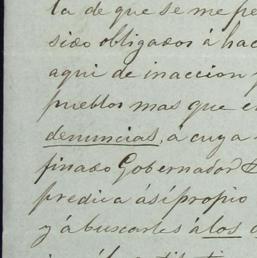 ta de que se me pe
sido obligados á hac
aqui de inaccion
pueblos mas que e
denuncias, á cuya
finado Gobernador
predica ási propio
y ábuscarles álos